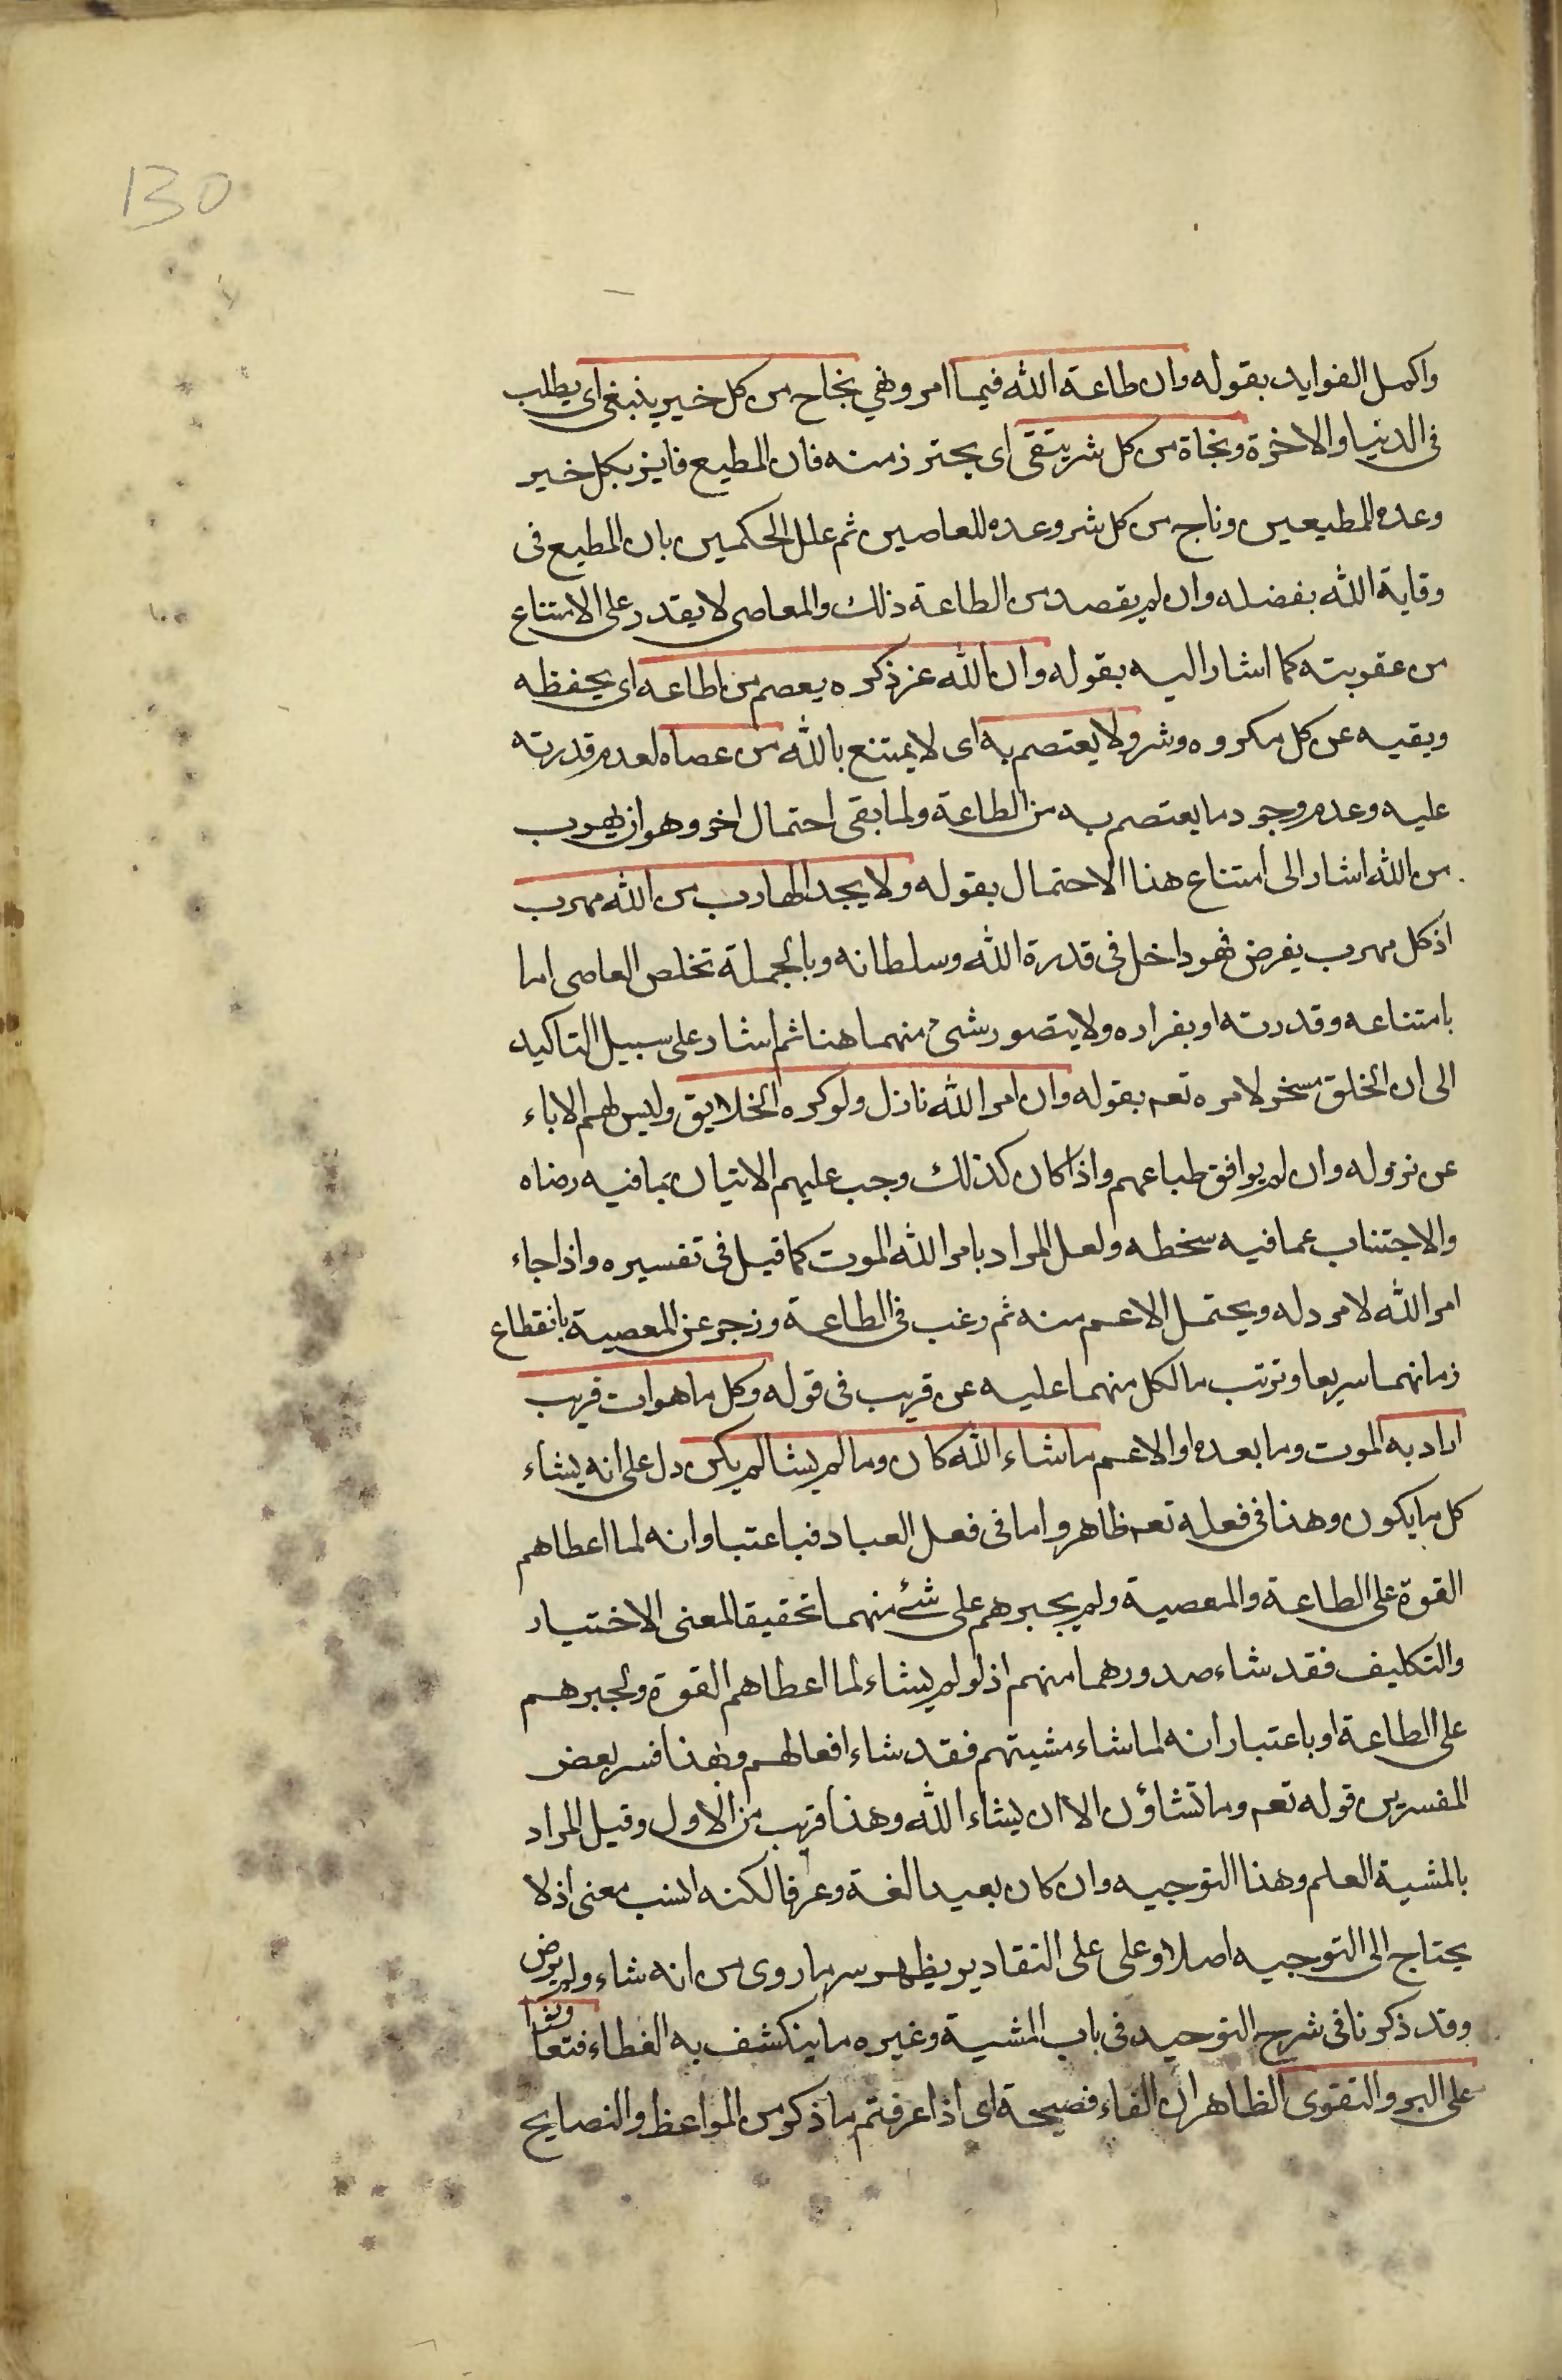 130
واكمل الفوايد بقوله وان طاعة الله فيما امر ونهي نجاح من كل خير ينبغي اى يطلب
فى الدنيا والاخرة ونجاة من كل شر يتقى اى يحترز منه فان المطيع فايز بكل خير
وعده للمطيعين وناج من كل شر وعده للعاصين ثم علل الحكمين بان المطيع فى
وقاية الله بفضله وان لم يقصد من الطاعة ذلك والمعاصى لا يقدر على الامتناع
من عقوبته كما اشار اليه بقوله وان الله عز ذكره يعصم من اطاعه اى يحفظه
ويقيه عن كل مكروه وشر ولا يعتصم به اى لا يمتنع بالله من عصاه لعدم قدرته
عليه وعدم وجود ما يعتصم به من الطاعة ولما بقى احتمال اخر وهو ان يهرب
من الله اشار الى امتناع هذا الاحتمال بقوله ولا يجد الهارب من الله مهرب
اذ كل مهرب يفرض فهو داخل فى قدرة الله وسلطانه وبالجملة تخلص العاصى اما
بامتناعه وقدرته او بفراره ولا يتصور شئ منهما هنا ثم اشار على سبيل التاكيد
الى ان الخلق مسخر لامره تعم بقوله وان امر الله نازل ولو كره الخلايق وليس لهم الاباء
عن نزوله وان لم يوافق طباعهم واذا كان كذلك وجب عليهم الاتيان بما فيه رضاه
والاجتناب عما فيه سخطه ولعل المراد بامر الله الموت كما قيل فى تفسيره واذا جاء
امر الله لا مرد له ويحتمل الاعم منه ثم رغب فى الطاعة وزجر عن المعصية بانقطاع
زمانهما سريعا وترتب ما لكل منهما عليه عن قريب فى قوله وكل ما هو ات قريب
اراد به الموت وما بعده او الاعم ما شاء الله كان وما لم يشا لم يكن دل على انه يشاء
كل ما يكون وهذا فى فعله تعم ظاهر واما فى فعل العباد فباعتبا وانه لما اعطاهم
القوة على الطاعة والمعصية ولم يجبرهم على شئ منهما تحقيقا لمعنى الاختيار
والتكليف فقد شاء صدورهما منهم اذ لو لم يشاء لما اعطاهم القوة ولجبرهم
على الطاعة او باعتبار انه لما شاء مشيتهم فقد شاء افعالهم وبهذا فسر بعض
المفسرين قوله تعم وما تشاؤن الا ان يشاء الله وهذا قريب من الاول وقيل المراد
بالمشية العلم وهذا التوجيه وان كان بعيدا لغة وعرفا لكنه انسب معنى اذ لا
يحتاج الى التوجيه اصلا وعلى على التقادير يظهر سر ما روى من انه شاء ولم يرض
وقد ذكرنا فى شرح التوحيد فى باب المشية وغيره ما ينكشف به الغطاء فتعاونوا
على البر والتقوى الظاهر ان الفاء فصيحة اى اذا عرفتم ما ذكر من المواعظ والنصايح